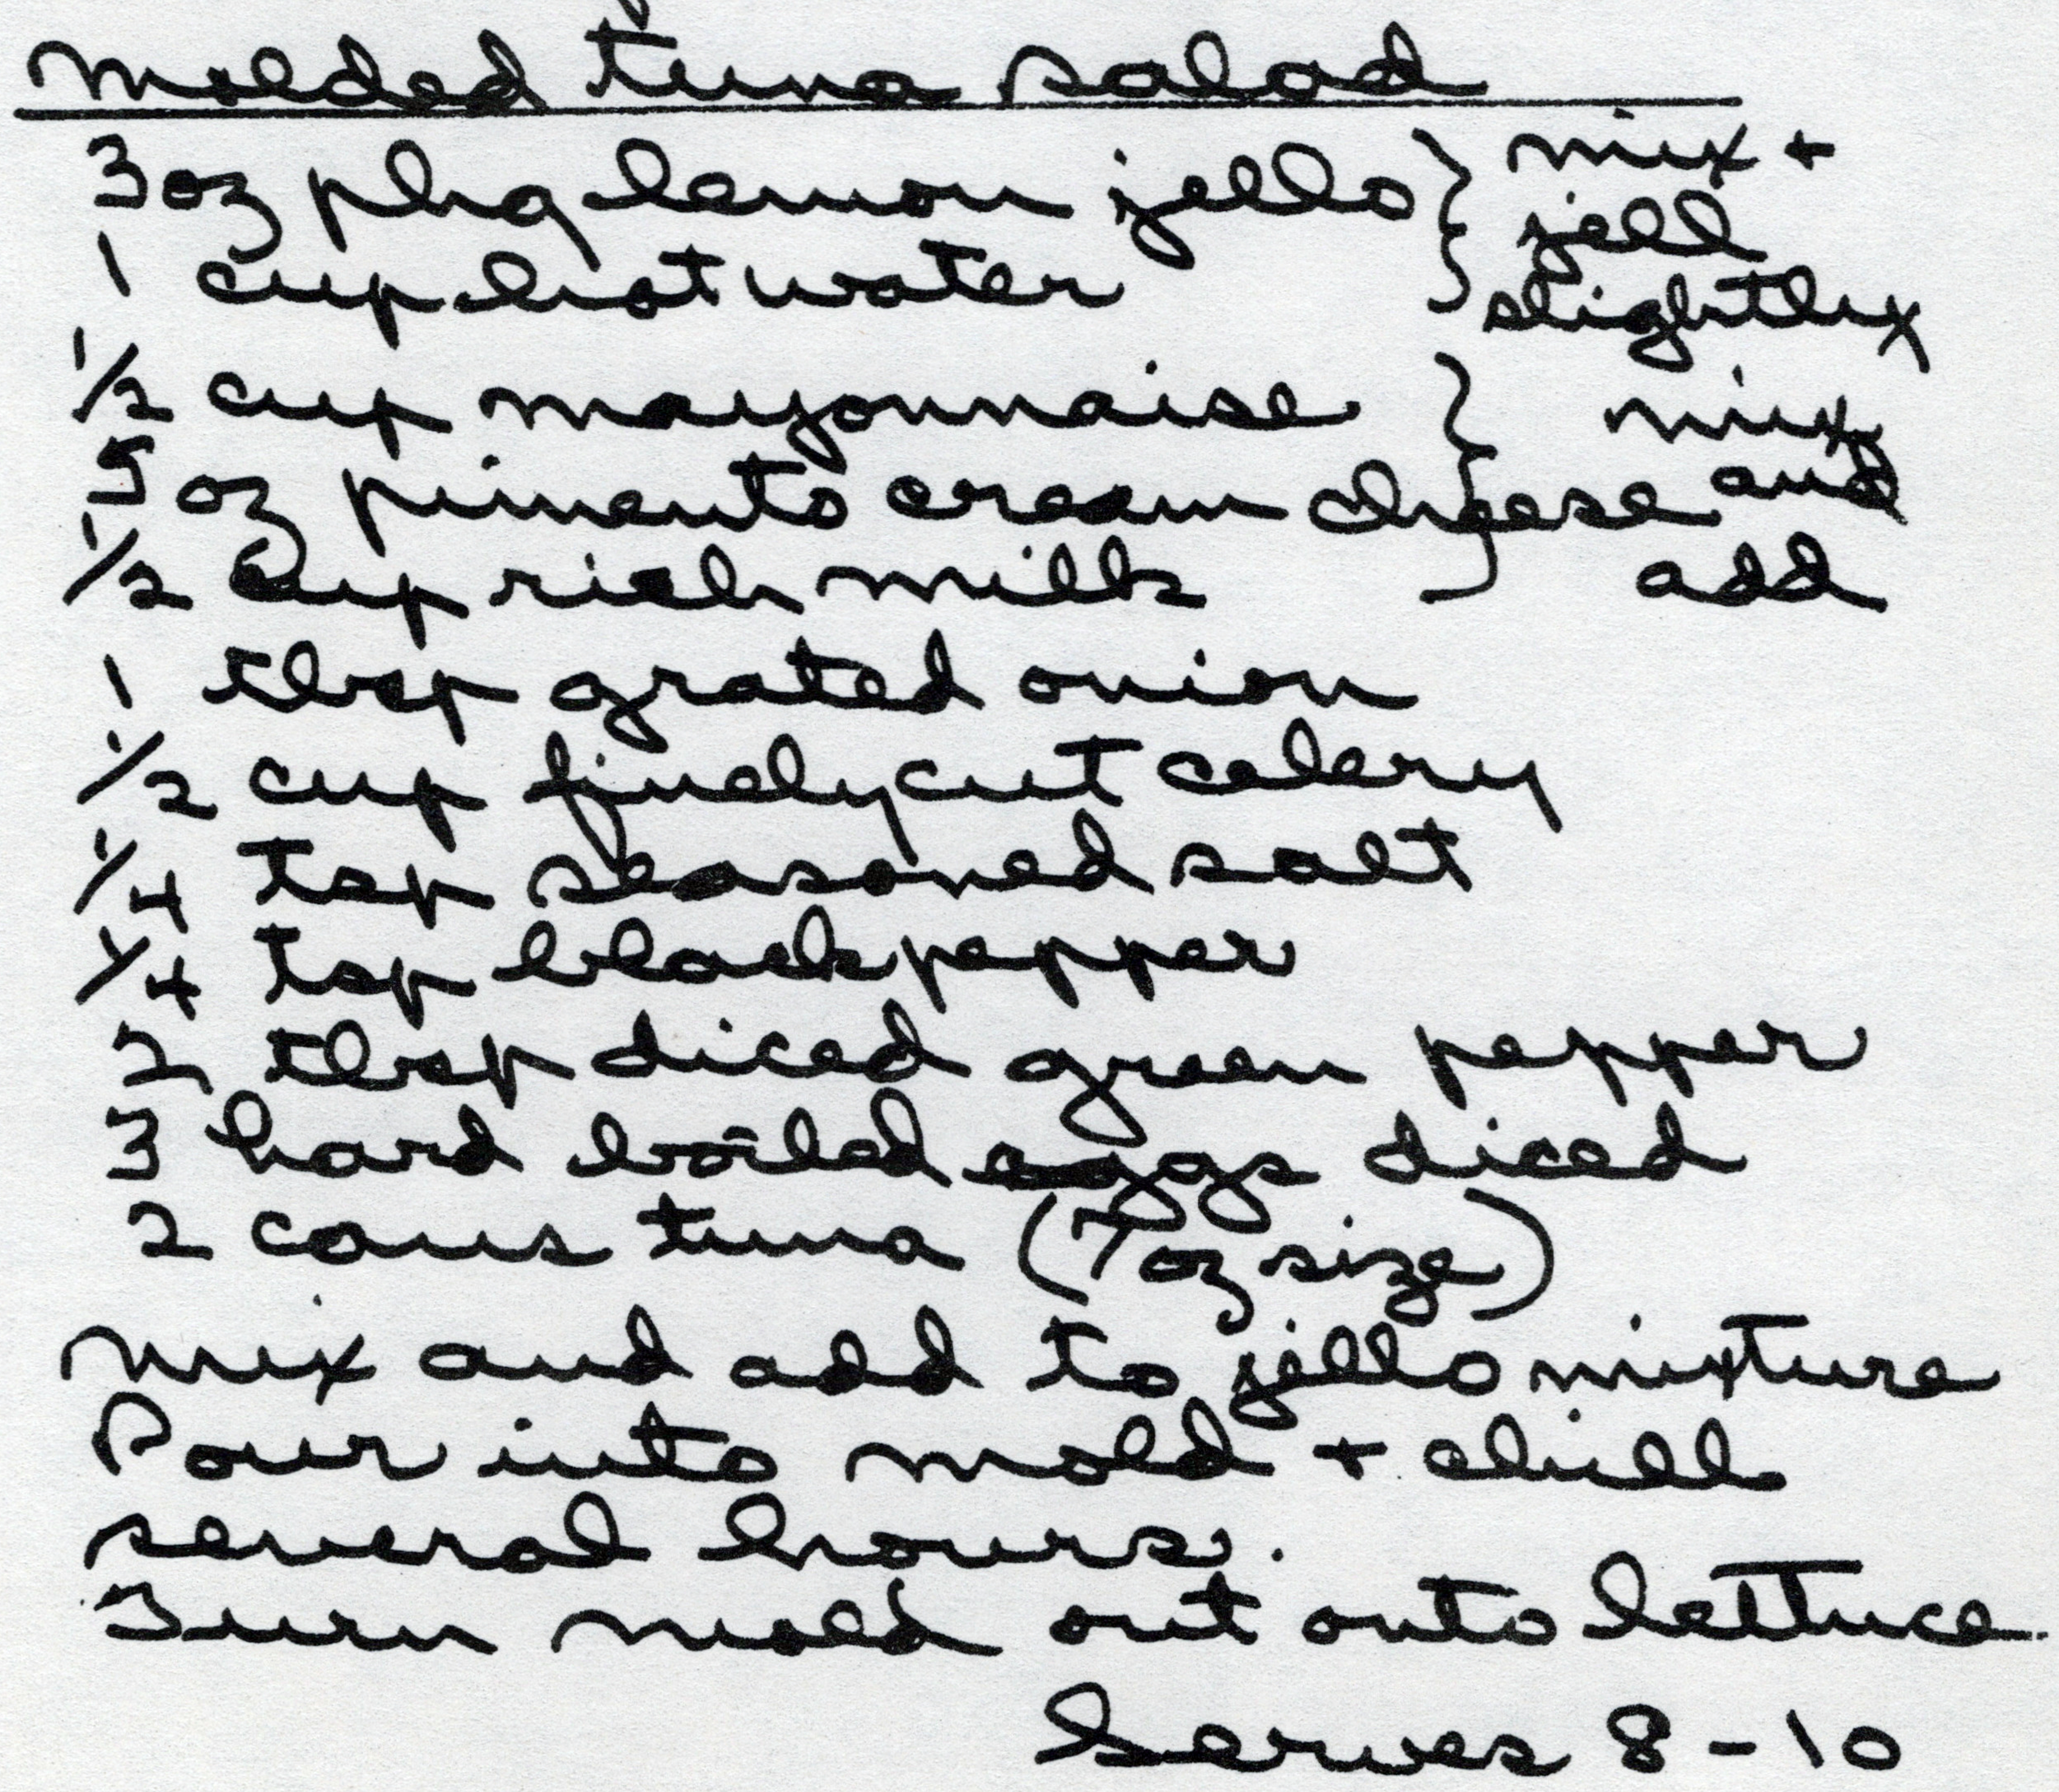 Molded tuna salad
3 oz pkg lemon jello } mix +
jell
1 cup hot water slightly
1/2 cup mayonnaise } mix
5 oz pimento cream cheese and
1/2 cup rich milk add
1 tbsp grated onion
1/2 cup finely cut celery
1/4 tsp seasoned salt
1/4 tsp black pepper
2 tbsp diced green pepper
3 hard boiled eggs diced
2 cans tuna (7 oz size)
Mix and add to jello mixture
Pour into mold + chill
several hours.
Turn mold out onto lettuce.
Serves 8-10